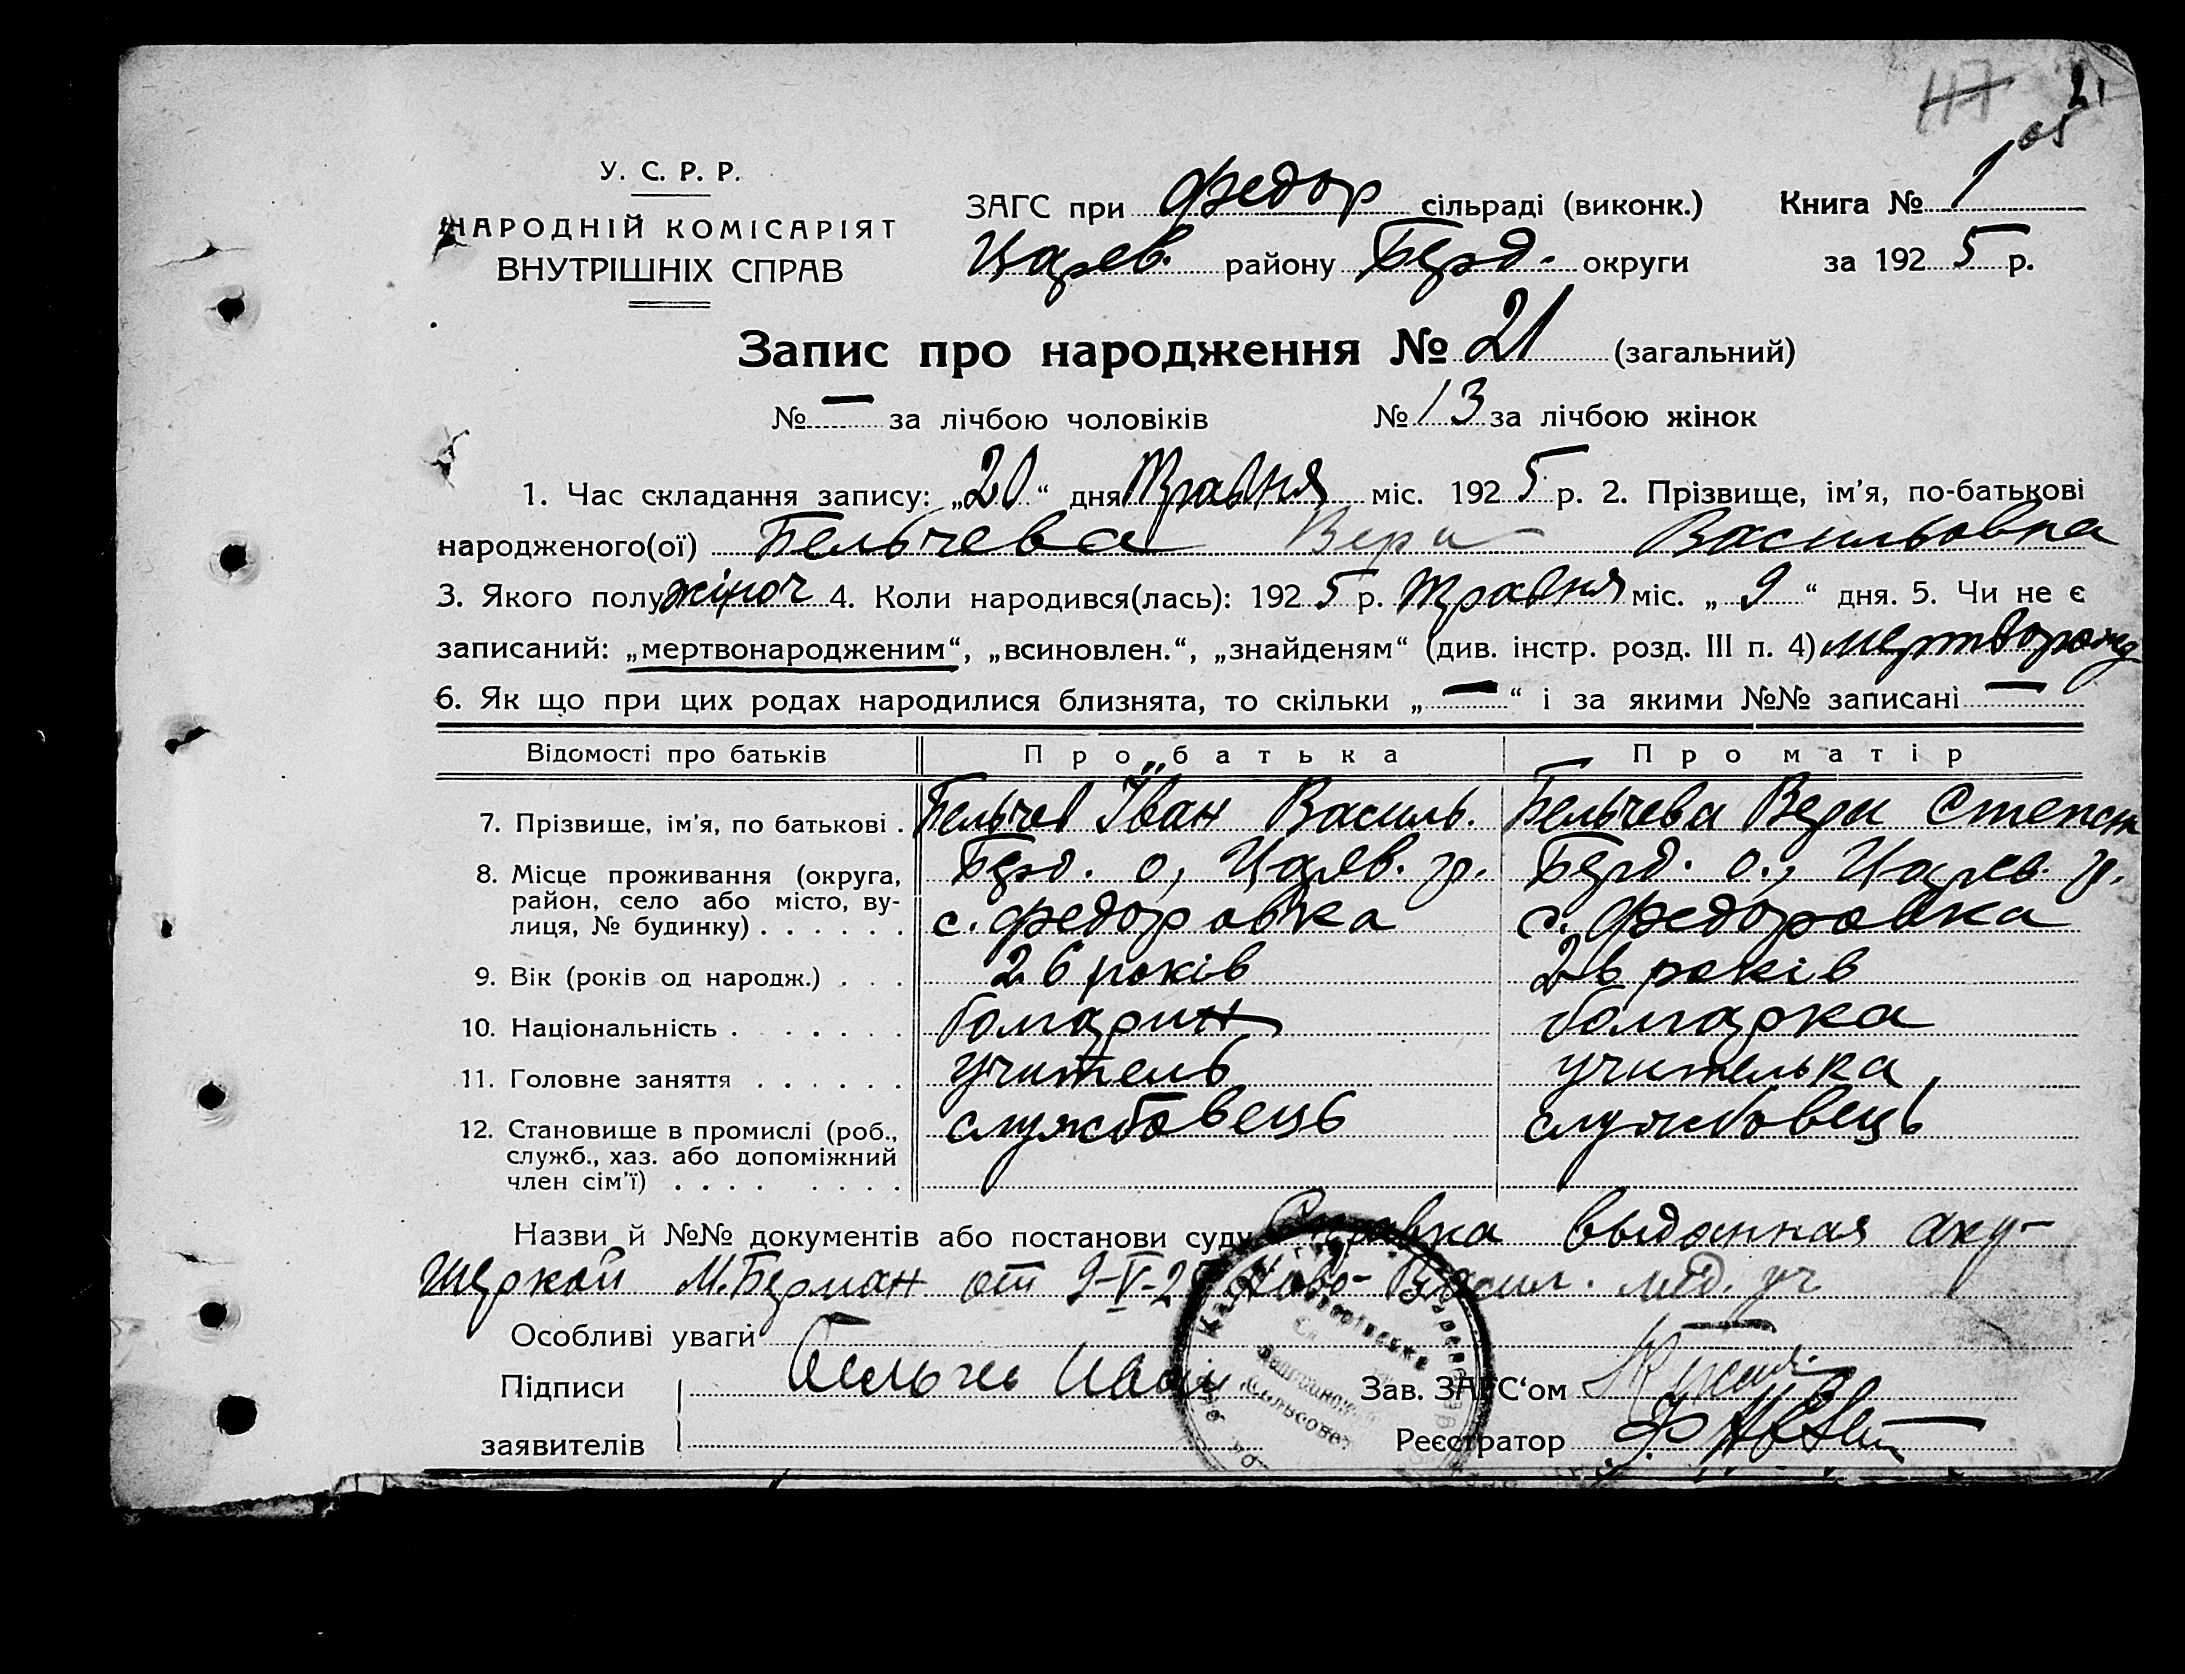 117 21
У. С. Р. Р.
НАРОДНІЙ КОМІСАРІЯТ
ВНУТРІШНІХ СПРАВ
ЗАГС при Федор сільраді (виконк.) Книга № 1
Царев. району Берд. округи за 1925 р.
Запис про народження № 21 (загальний)
№ — за лічбою чоловіків № 13 за лічбою жінок
1. Час складання запису: „20“ дня Травня міс. 1925 р. 2. Прізвище, ім'я, по-батькові
народженого(ої) Бельчева Вера Васильовна
3. Якого полу жіноч 4. Коли народився(лась): 1925 р. Травня міс. „9“ дня. 5. Чи не є
записаний: „мертвонародженим“, „всиновлен.“, „знайденям“ (див. інстр. розд. III п. 4) мертворожд
6. Як що при цих родах народилися близнята, то скільки „—“ і за якими №№ записані —
Відомості про батьків Про батька Про матір
7. Прізвище, ім'я, по батькові . Бельчев Іван Василь. Бельчева Вера Степан
8. Місце проживання (округа, Берд. о, Царев. р. Берд. о., Царев. р.
район, село або місто, ву-
лиця, № будинку) . . . . . . с. Федоровка с. Федоровка
9. Вік (років од народж.) . . . 26 років 26 років
10. Національність . . . . . . болгарин болгарка
11. Головне заняття . . . . . . учитель учителька
12. Становище в промислі (роб., службовець службовець
служб., хаз. або допоміжний
член сім'ї) . . . . . . . .
Назви й №№ документів або постанови суду Справка выданная аку-
шеркой М. Берман от 9-V-25 Ново-Васил. мед. уч
Особливі уваги —
Підписи Бельчев Иван Зав. ЗАГС‘ом
заявителів Реєстратор